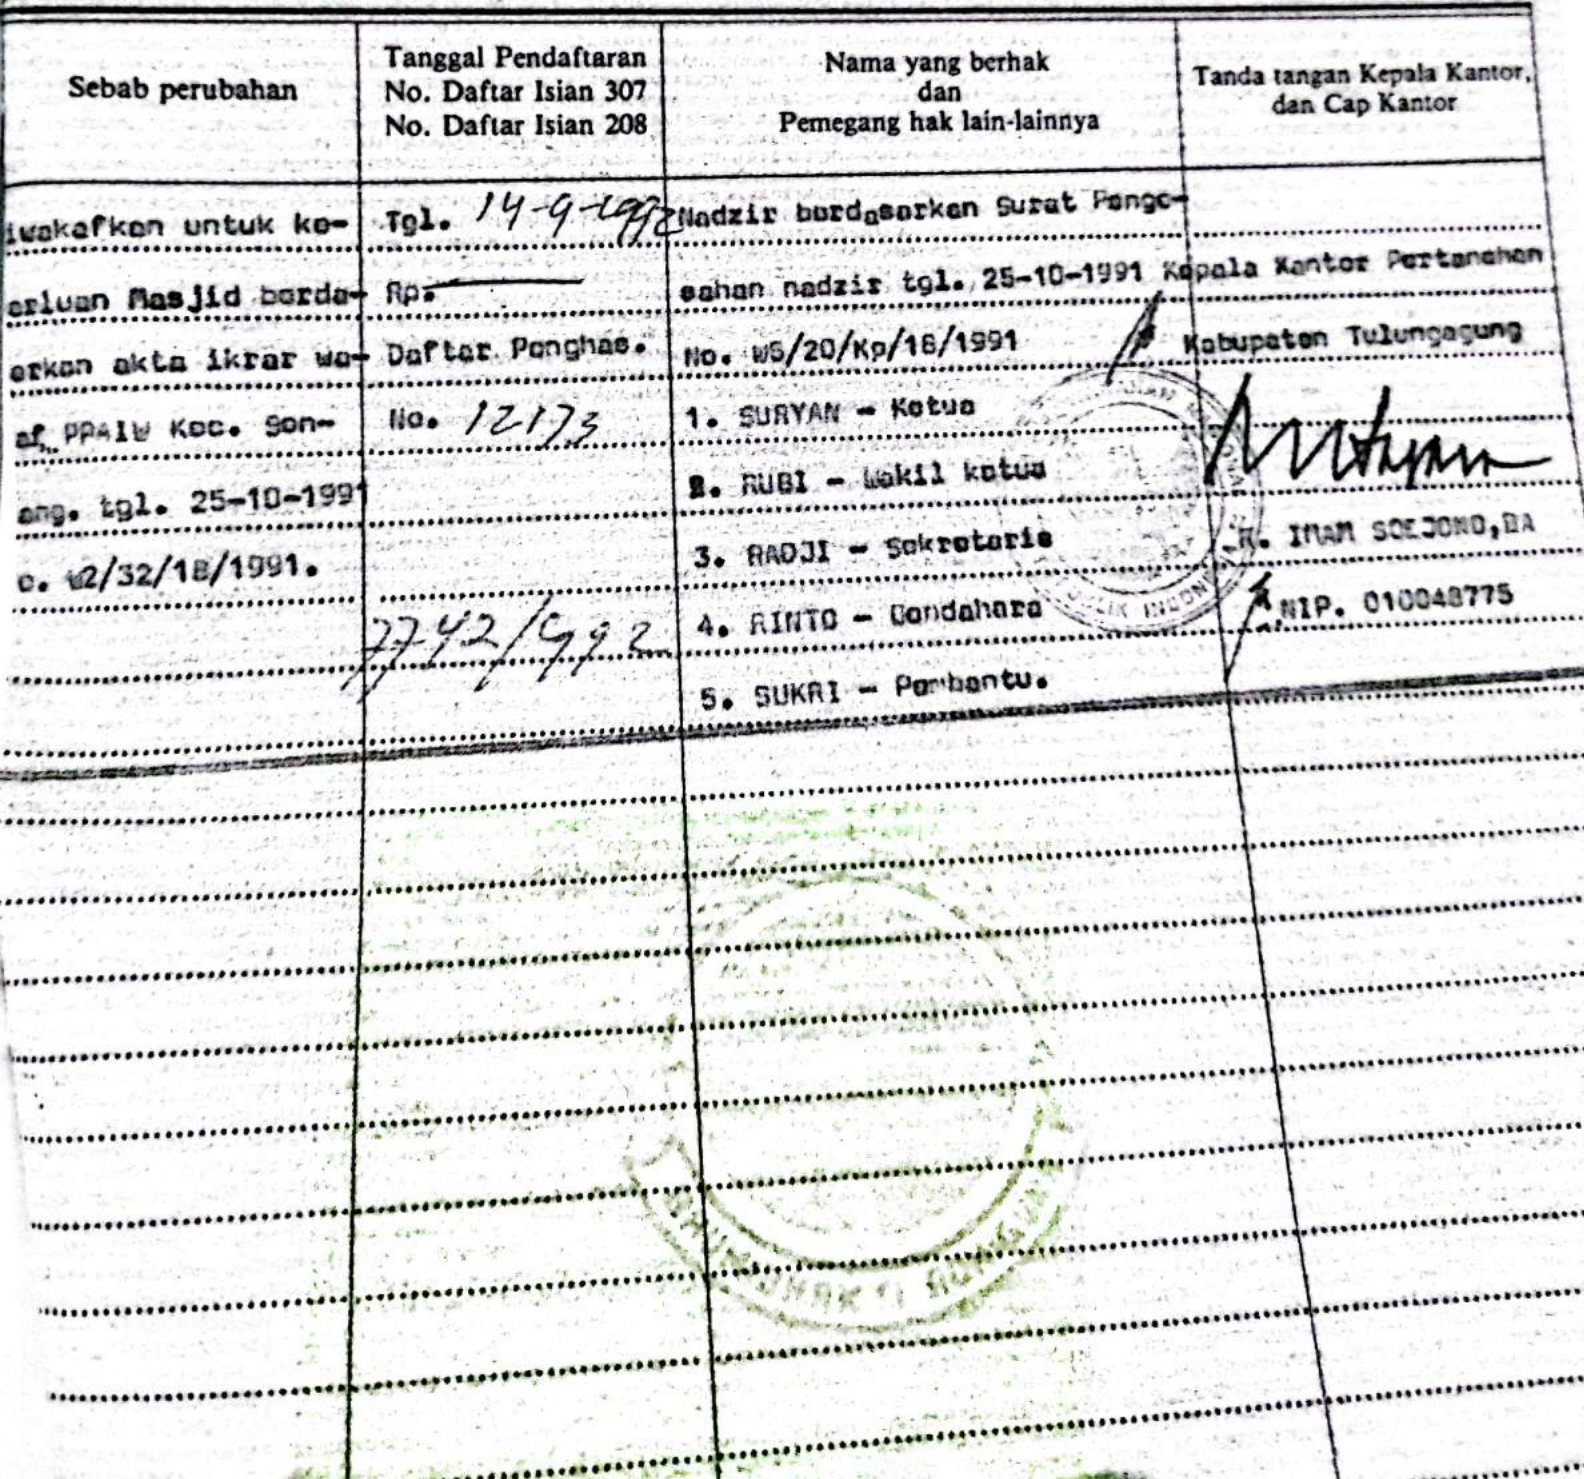 Sebab perubahan
Tanggal Pendaftaran
No. Daftar Isian 307
No. Daftar Isian 208
Nama yang berhak
dan
Pemegang hak lain-lainnya
Tanda tangan Kepala Kantor,
dan Cap Kantor
iwakafkan untuk ke-
erluan Masjid berda-
erkan akta ikrar wa-
af, PPAIW Kec. Gon-
ang. tgl. 25-10-1991
o. W2/32/18/1991.
Tgl. 14-9-1992
Rp.
Daftar Penghas.
No. 12173
7742/1992
Nadzir berdasarkan Surat Penge-
sahan nadzir tgl. 25-10-1991
No. W5/20/Kp/18/1991
1. SURYAN - Ketua
2. RUBI - Wakil ketua
3. RADJI - Sekretaris
4. RINTO - Bendahara
5. SUKRI - Pembantu.
Kepala Kantor Pertanahan
Kabupaten Tulungagung
R. IMAM SOEJONO,BA
NIP. 010048775